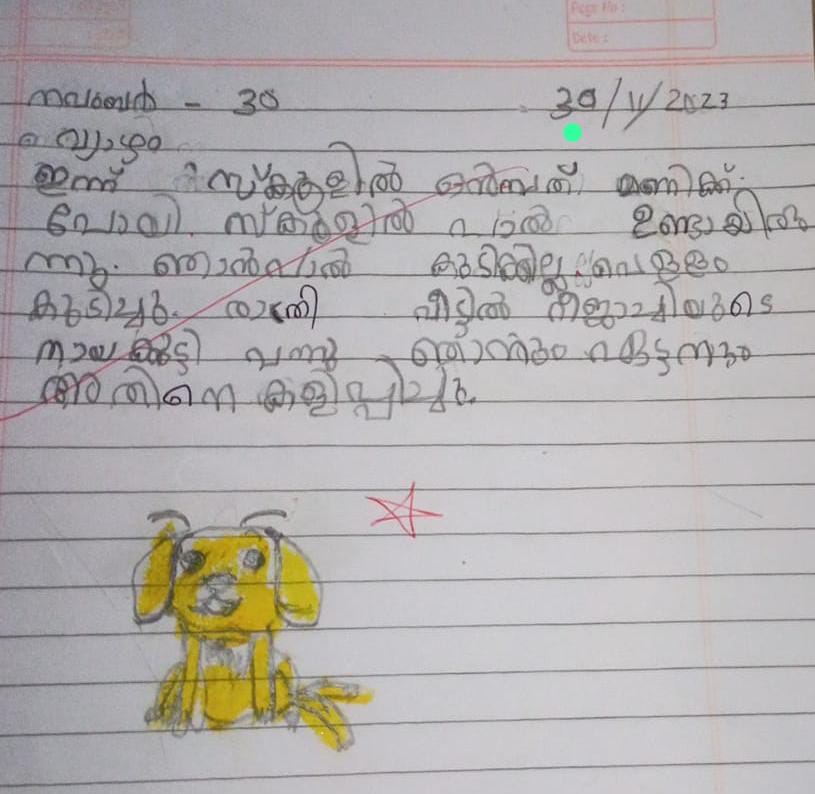 Page No :
Date :
നവംബർ - 30 30/11/2023
വ്യാഴം
ഇന്ന് സ്കൂളിൽ ഒൻബത് മണിക്ക്
പോയി. സ്കൂളിൽ പാൽ ഉണ്ടായിരു
ന്നു. ഞാൻപാൽ കുടിക്കില്ല വെള്ളം
കുടിച്ചു. രാത്രി വീട്ടിൽ നീജാച്ചിയുടെ
നായകുട്ടി വന്നു ഞാനും
അതിനെ കളിപ്പിച്ചു.